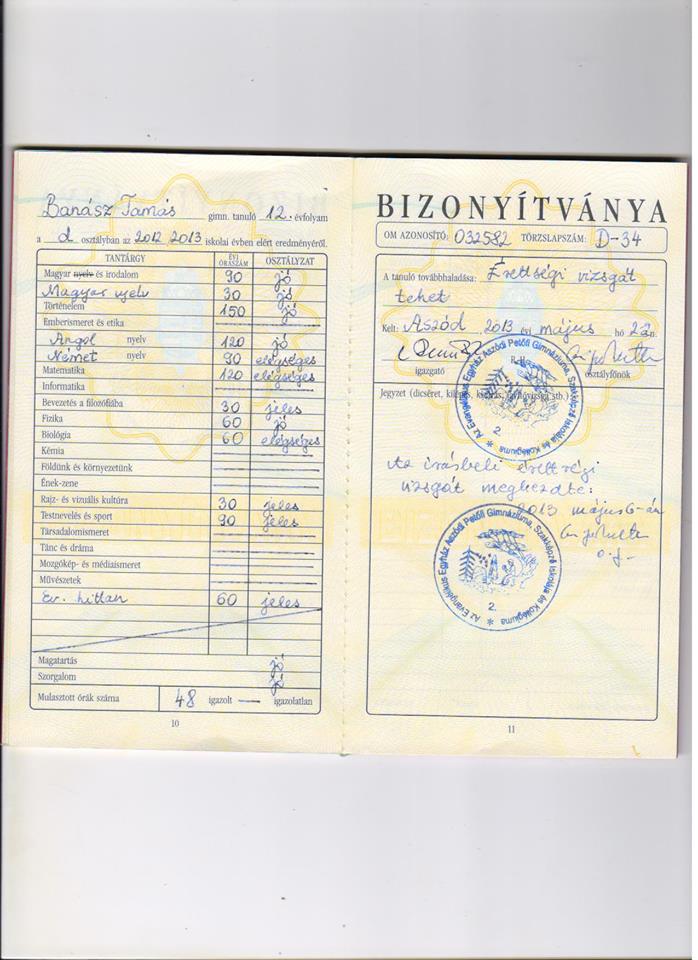 Banász Tamás gimn. tanuló 12. évfolyam
a d osztályban az 2012/2013 iskolai évben elért eredményéről.
TANTÁRGY ÉVI ÓRASZÁM OSZTÁLYZAT
Magyar nyelv és irodalom 90 jó
Magyar nyelv 30 jó
Történelem 150 jó
Emberismeret és etika
Angol nyelv 120 jó
Német nyelv 90 elégséges
Matematika 120 elégséges
Informatika
Bevezetés a filozófiába 30 jeles
Fizika 60 jó
Biológia 60 elégséges
Kémia
Földünk és környezetünk
Ének-zene
Rajz- és vizuális kultúra 30 jeles
Testnevelés és sport 90 jeles
Társadalomismeret
Tánc és dráma
Mozgókép- és médiaismeret
Művészetek
Ev. hittan 60 jeles
Magatartás jó
Szorgalom jó
Mulasztott órák száma 48 igazolt — igazolatlan
10
BIZONYÍTVÁNYA
OM AZONOSÍTÓ: 032582 TÖRZSLAPSZÁM: D-34
A tanuló továbbhaladása: Érettségi vizsgát
tehet
Kelt: Aszód, 2013 évi május hó 2 n.
igazgató P. H. osztályfőnök
Jegyzet (dicséret, kilépés, javítóvizsga stb.)
Az Evangélikus Egyház Aszódi Petőfi Gimnáziuma, Szakképző Iskolája és Kollégiuma *
2.
Az írásbeli érettségi
vizsgát megkezdte:
2013 május 6-án
o.f.
Az Evangélikus Egyház Aszódi Petőfi Gimnáziuma, Szakképző Iskolája és Kollégiuma *
2.
11